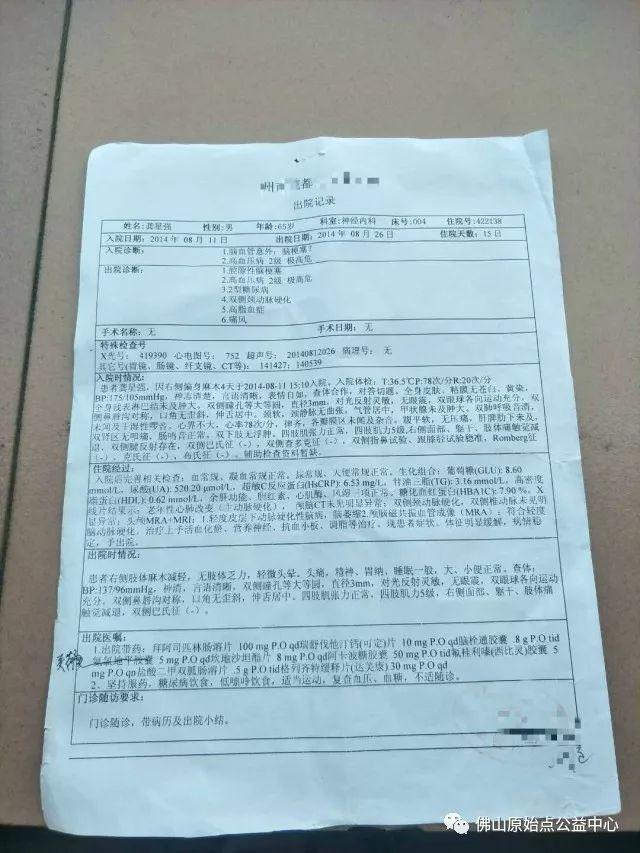 州 都
出院记录
姓名:龚星强 性别:男 年龄:65岁 科室:神经内科 床号:004 住院号:422138
入院日期:2014 年 08 月 11 日 出院日期:2014 年 08 月 26 日 住院天数:15日
入院诊断: 1.脑血管意外:脑梗塞?
2.高血压病 2级 极高危
出院诊断: 1.腔隙性脑梗塞
2.高血压病 2级 极高危
3.2型糖尿病
4.双侧颈动脉硬化
5.高脂血症
6.痛风
手术名称:无 手术日期:无
特殊检查号
X光号: 419390 心电图号: 752 超声号: 20140812026 病理号: 无
其它号(胃镜、肠镜、纤支镜、CT等): 141427; 140539
入院时情况:
患者龚星强,因右侧偏身麻木4天于2014-08-11 15:10入院,入院体检:T:36.5℃P:78次/分R:20次/分
BP:175/105mmHg,神志清楚,言语清晰,表情自如,查体合作,对答切题,全身皮肤、粘膜无苍白、黄染,
全身浅表淋巴结未及肿大。双侧瞳孔等大等圆,直径3mm,对光反射灵敏,无眼震,双眼球各向运动充分。双
侧鼻唇沟对称,口角无歪斜,伸舌居中。颈软,颈静脉无曲张。气管居中,甲状腺未及肿大。双肺呼吸音清,
未闻及干湿性啰音。心界不大,心率78次/分,律齐,各瓣膜区未闻及杂音。腹平软,无压痛,肝脾肋下未及,
双肾区无叩痛,肠鸣音正常。双下肢无浮肿,四肢肌张力正常,四肢肌力5级,右侧面部、躯干、肢体痛触觉减
退,双侧腱反射存在,双侧巴氏征(-),双侧查多克征(-),双侧指鼻试验、跟膝胫试验稳准,Romberg征
(-)。克氏征(-),布氏征(-)。辅助检查资料暂缺。
住院经过:
入院后完善相关检查:血常规、凝血常规正常。尿常规、大便常规正常。生化组合:葡萄糖(GLU): 8.60
mmol/L,尿酸(UA): 520.20 μmol/L,超敏C反应蛋白(HsCRP): 6.53 mg/L,甘油三脂(TG): 3.16 mmol/L,高密度
脂蛋白(HDL): 0.62 mmol/L,余肝功能、胆红素、心肌酶、风湿三项正常。糖化血红蛋白(HBA1C): 7.90 %。X
线片结果示: 老年性心肺改变(主动脉硬化),颅脑CT未见明显异常;双侧颈动脉硬化,双侧椎动脉未见明
显异常;头颅MRA+MRI: 1.轻度皮层下动脉硬化性脑病,脑萎缩2.颅脑磁共振血管成像(MRA):符合轻度
脑动脉硬化。治疗上予活血化瘀、营养神经、抗血小板、调脂等治疗。现患者症状、体征明显缓解,病情稳
定,予出院。
出院时情况:
患者右侧肢体麻木减轻,无肢体乏力,轻微头晕、头痛,精神、胃纳、睡眠一般,大、小便正常。查体:
BP:137/96mmHg,神清,言语清晰,双侧瞳孔等大等圆,直径3mm,对光反射灵敏,无眼震,双眼球各向运动
充分。双侧鼻唇沟对称,口角无歪斜,伸舌居中。四肢肌张力正常,四肢肌力5级,右侧面部、躯干、肢体痛
触觉减退,双侧巴氏征(-)。
出院医嘱:
1.出院带药: 拜阿司匹林肠溶片 100 mg P.O qd瑞舒伐他汀钙(可定)片 10 mg P.O qd脑栓通胶囊 .8 g P.O tid
氨氯地平胶囊 5 mg P.O qd坎地沙坦酯片 8 mg P.O qd阿卡波糖胶囊 50 mg P.O tid氟桂利嗪(西比灵)胶囊 5
mg P.O qn盐酸二甲双胍肠溶片 .5 g P.O tid格列齐特缓释片(达美康)30 mg P.O qd
2、坚持服药,糖尿病饮食,低嘌呤饮食,适当运动,复查血压、血糖,不适随诊。
门诊随访要求:
门诊随访,带病历及出院小结。
佛山原始点公益中心